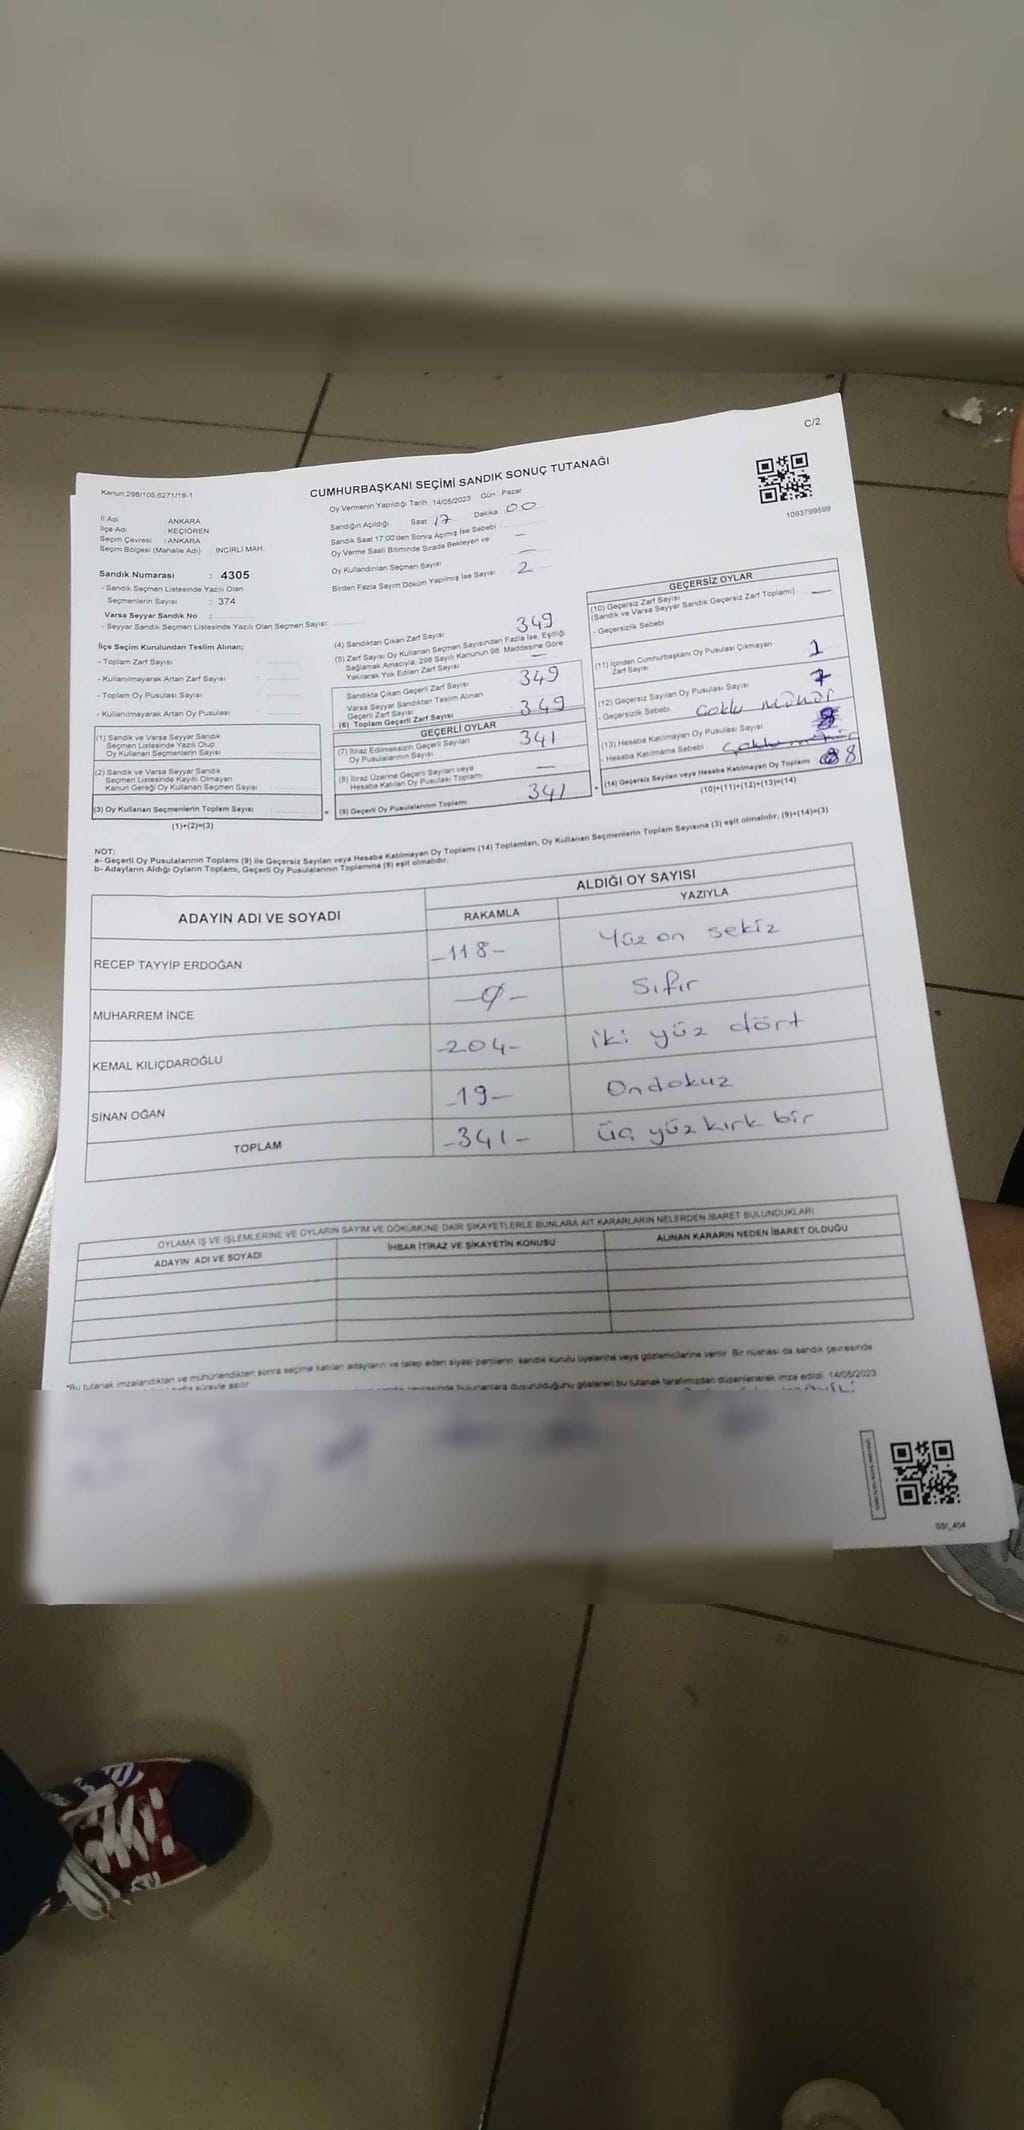 C/2
Kanun:298/105,6271/18-1
CUMHURBAŞKANI SEÇİMİ SANDIK SONUÇ TUTANAĞI
1093799599
İl Adı : ANKARA
İlçe Adı : KEÇİÖREN
Seçim Çevresi : ANKARA
Seçim Bölgesi (Mahalle Adı) : İNCİRLİ MAH.
Oy Vermenin Yapıldığı Tarih : 14/05/2023 Gün : Pazar
Sandığın Açıldığı Saat 17 Dakika 00
Sandık Saat 17:00'den Sonra Açımış İse Sebebi : —
Oy Verme Saati Bitiminde Sırada Bekleyen ve
Oy Kullandırılan Seçmen Sayısı —
Birden Fazla Sayım Döküm Yapılmış İse Sayısı : 2
Sandık Numarası : 4305
- Sandık Seçmen Listesinde Yazılı Olan
Seçmenlerin Sayısı : 374
Varsa Seyyar Sandık No :
- Seyyar Sandık Seçmen Listesinde Yazılı Olan Seçmen Sayısı:
İlçe Seçim Kurulundan Teslim Alınan;
- Toplam Zarf Sayısı :
- Kullanılmayarak Artan Zarf Sayısı :
- Toplam Oy Pusulası Sayısı :
- Kullanılmayarak Artan Oy Pusulası :
(1) Sandık ve Varsa Seyyar Sandık
Seçmen Listesinde Yazılı Olup
Oy Kullanan Seçmenlerin Sayısı
(2) Sandık ve Varsa Seyyar Sandık
Seçmen Listesinde Kayıtlı Olmayan
Kanun Gereği Oy Kullanan Seçmen Sayısı
(3) Oy Kullanan Seçmenlerin Toplam Sayısı
(1)+(2)=(3)
(4) Sandıktan Çıkan Zarf Sayısı 349
(5) Zarf Sayısı Oy Kullanan Seçmen Sayısından Fazla İse, Eşitliği
Sağlamak Amacıyla; 298 Sayılı Kanunun 98. Maddesine Göre
Yakılarak Yok Edilen Zarf Sayısı —
Sandıkta Çıkan Geçerli Zarf Sayısı 349
Varsa Seyyar Sandıktan Teslim Alınan
Geçerli Zarf Sayısı
(6) Toplam Geçerli Zarf Sayısı 349
GEÇERLİ OYLAR
(7) İtiraz Edilmeksizin Geçerli Sayılan
Oy Pusulasının Sayısı 341
(8) İtiraz Üzerine Geçerli Sayılan veya
Hesaba Katılan Oy Pusulası Toplamı —
(9) Geçerli Oy Pusulalarının Toplamı 341
GEÇERSİZ OYLAR
(10) Geçersiz Zarf Sayısı
(Sandık ve Varsa Seyyar Sandık Geçersiz Zarf Toplamı) —
- Geçersizlik Sebebi
(11) İçinden Cumhurbaşkanı Oy Pusulası Çıkmayan
Zarf Sayısı 1
(12) Geçersiz Sayılan Oy Pusulası Sayısı 7
- Geçersizlik Sebebi Çoklu mühür
(13) Hesaba Katılmayan Oy Pusulası Sayısı
- Hesaba Katılmama Sebebi :
(14) Geçersiz Sayılan veya Hesaba Katılmayan Oy Toplamı 8
(10)+(11)+(12)+(13)=(14)
NOT:
a- Geçerli Oy Pusulalarının Toplamı (9) ile Geçersiz Sayılan veya Hesaba Katılmayan Oy Toplamı (14) Toplamları, Oy Kullanan Seçmenlerin Toplam Sayısına (3) eşit olmalıdır. (9)+(14)=(3)
b- Adayların Aldığı Oyların Toplamı, Geçerli Oy Pusulalarının Toplamına (9) eşit olmalıdır.
ADAYIN ADI VE SOYADI
ALDIĞI OY SAYISI
RAKAMLA YAZIYLA
RECEP TAYYİP ERDOĞAN -118- Yüz on sekiz
MUHARREM İNCE -0- Sıfır
KEMAL KILIÇDAROĞLU -204- iki yüz dört
SİNAN OĞAN -19- Ondokuz
TOPLAM -341- üç yüz kırk bir
OYLAMA İŞ VE İŞLEMLERİNE VE OYLARIN SAYIM VE DÖKÜMÜNE DAİR ŞİKAYETLERLE BUNLARA AİT KARARLARIN NELERDEN İBARET BULUNDUKLARI
ADAYIN ADI VE SOYADI İHBAR İTİRAZ VE ŞİKAYETİN KONUSU ALINAN KARARIN NEDEN İBARET OLDUĞU
*Bu tutanak imzalandıktan ve mühürlendikten sonra seçime katılan adayların ve talep eden siyasi partilerin sandık kurulu üyelerine veya gözlemcilerine verilir. Bir nüshası da sandık çevresinde
hafta süreyle asılır
sandık çevresinde bulunanlara duyurulduğunu gösteren bu tutanak tarafımızdan düzenlenerek imza edildi. 14/05/2023
SSI_404